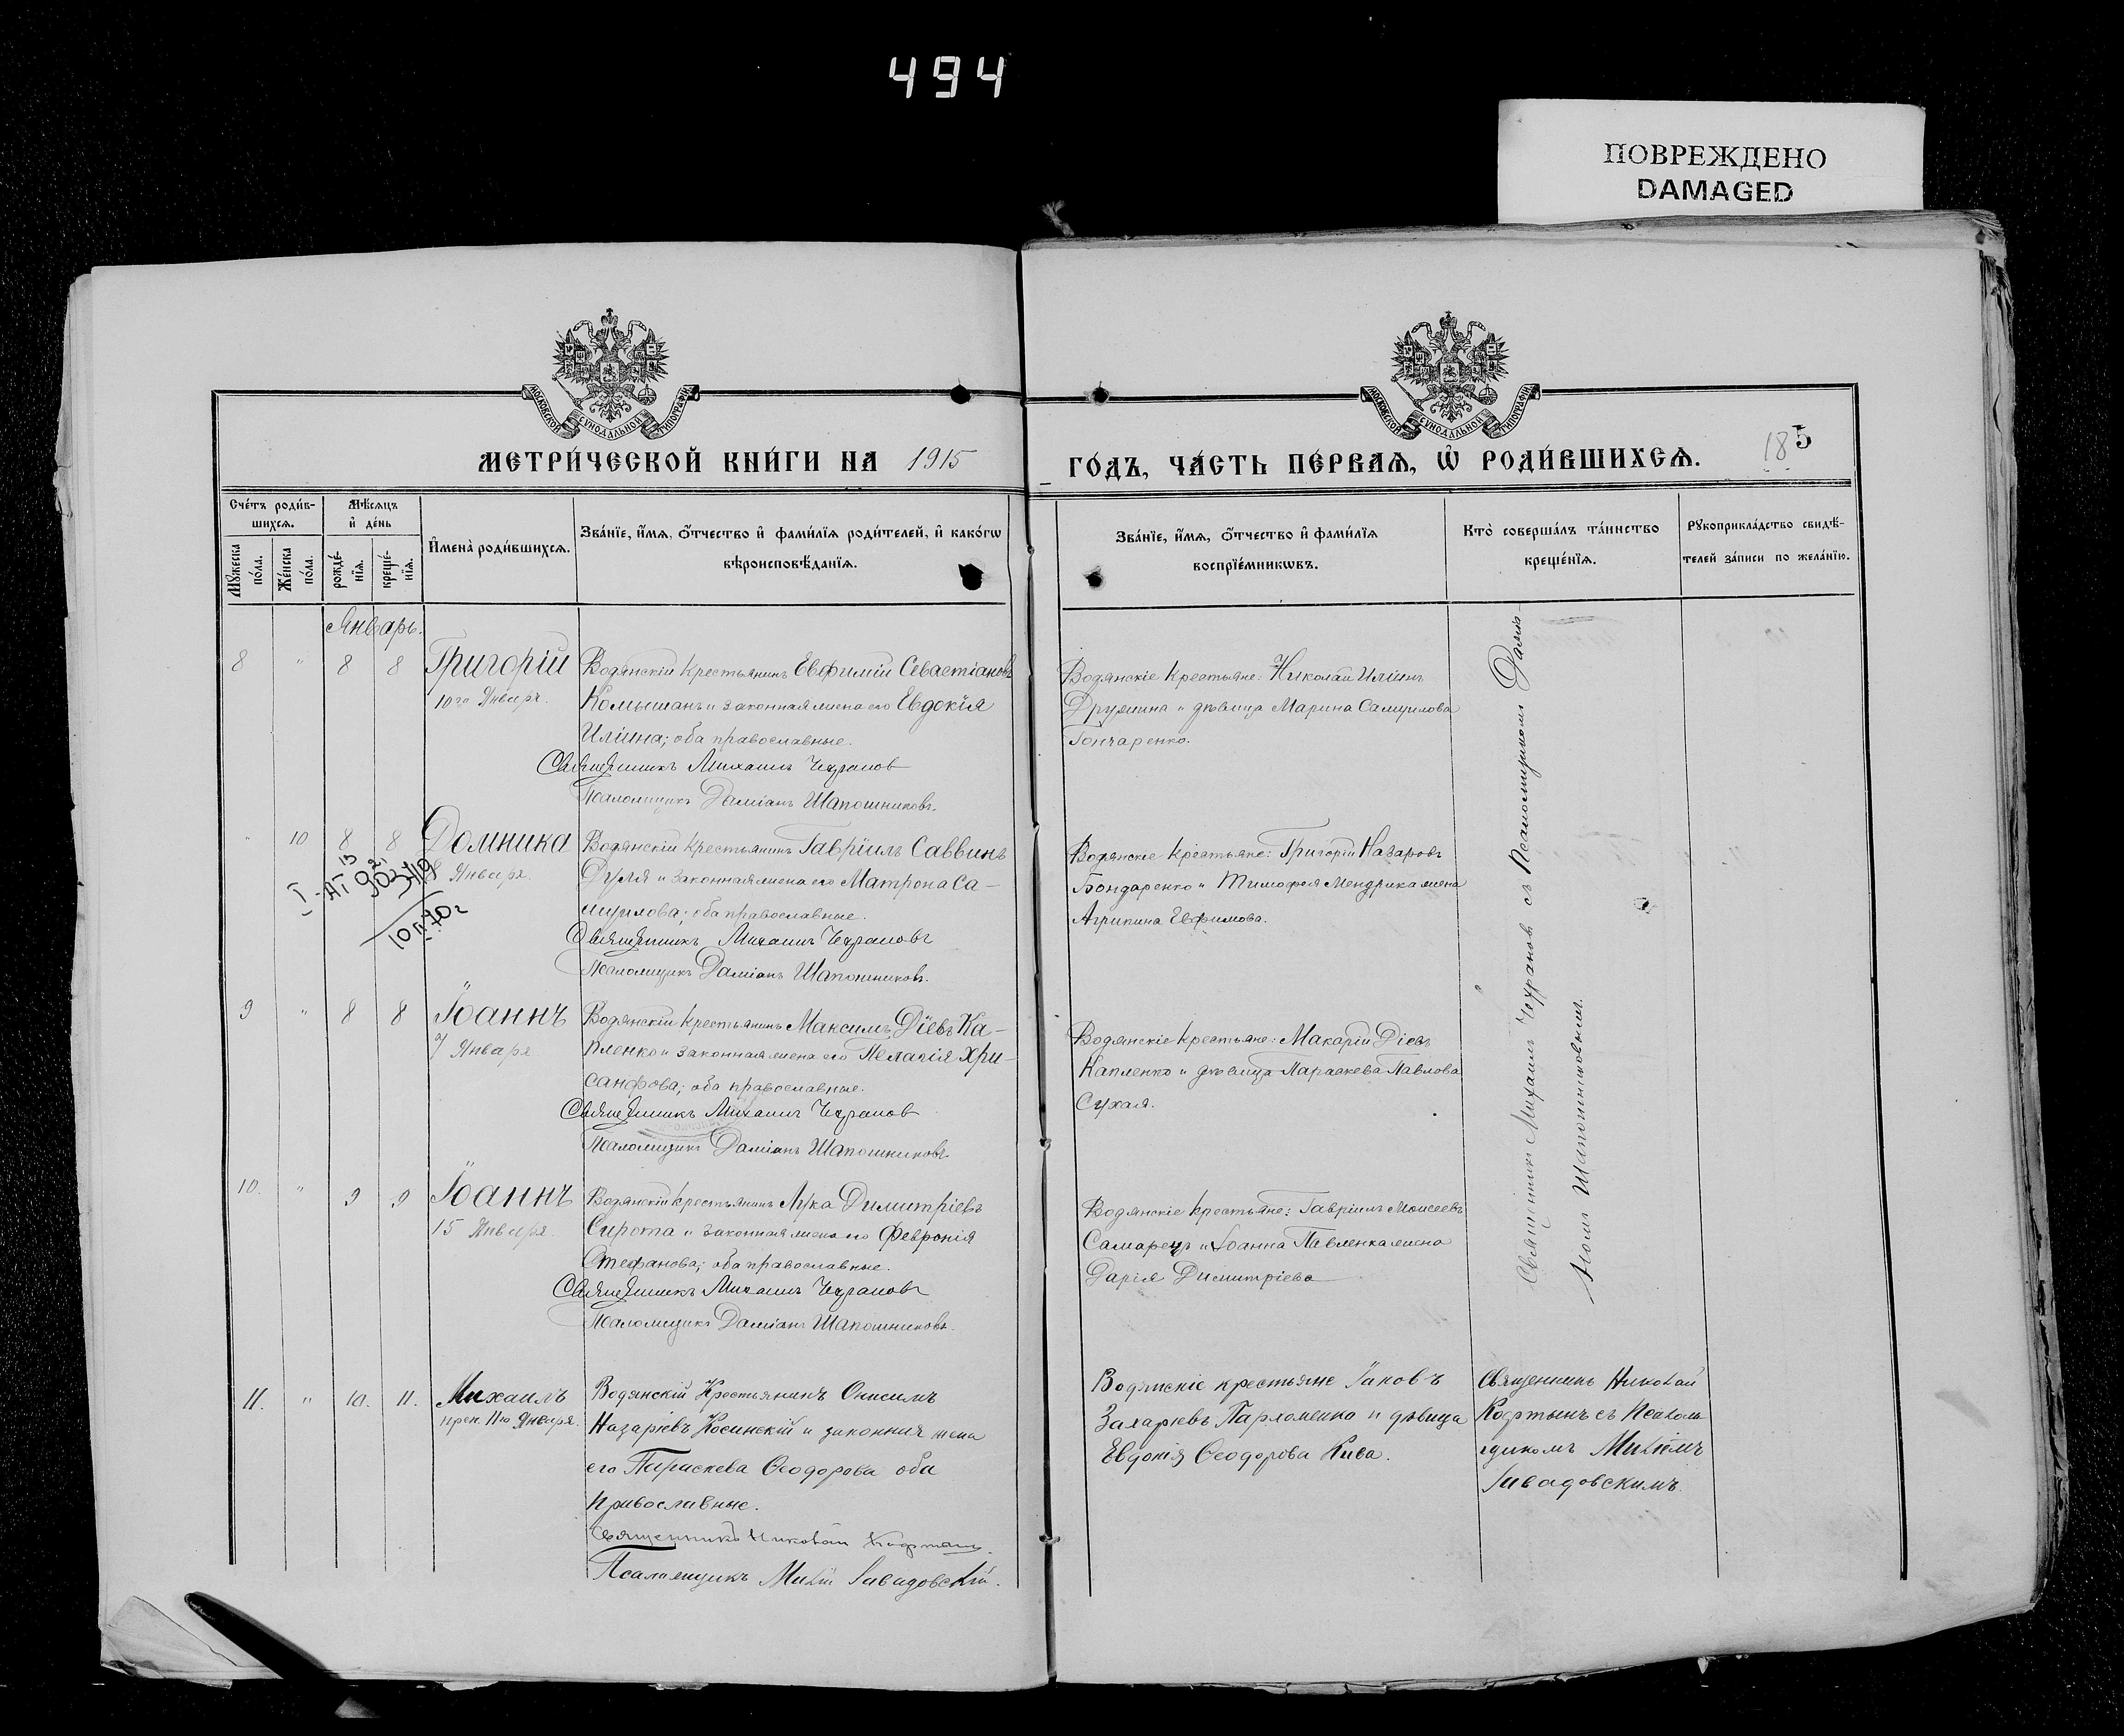 494
ПОВРЕЖДЕНО
DAMAGED
МОСКОВСКОЙ СѴНОДАЛЬНОЙ ТИПОГРАФІИ
МОСКОВСКОЙ СѴНОДАЛЬНОЙ ТИПОГРАФІИ
МЕТРИ́ЧЕСКОЙ КНИ́ГИ НА 1915
ГО́ДЪ, ЧА́СТЬ ПЕ́РВАѦ, Ѡ РОДИ́ВШИХСѦ.
185
Сче́тъ роди́в-
шихсѧ.
Мѣ́сѧцъ
и҆ де́нь
Мꙋ́жеска
по́ла.
Же́нска
по́ла.
рожде́-
нїѧ.
креще́-
нїѧ.
И҆мена̀ роди́вшихсѧ.
Зва́нїе, и҆́мѧ, ѻ҆́тчество и҆ фами́лїѧ роди́телей, и҆ како́гѡ
вѣроисповѣ́данїѧ.
Зва́нїе, и҆́мѧ, ѻ҆́тчество и҆ фами́лїѧ
воспрїе́мникѡвъ.
Кто̀ соверша́лъ та́инство
креще́нїѧ.
Рꙋкоприкла́дство свидѣ́-
телей за́писи по жела́нїю.
Январь.
8 " 8 8 Григорій
10го Января.
Водянскій крестьянинъ Евфимій Севастіановъ
Комышанъ и законная жена его Евдокія
Иліина; оба православные.
Священникъ Михаилъ Чехранов
Псаломщикъ Даміанъ Шапошниковъ.
Водянскіе крестьяне: Николай Иліинъ
Дружина и дѣвица Марина Самуилова
Гончаренко.
" 10 8 8 Домника
8 Января.
Водянскій крестьянинъ Гавріилъ Саввинъ
Дуля и законная жена его Матрона Са-
муилова; оба православные.
Священникъ Михаилъ Чехрановъ
Псаломщикъ Даміанъ Шапошниковъ.
Водянскіе крестьяне: Григорій Назаровъ
Бондаренко и Тимофея Мендрика жена
Агрипина Евфимова.
9 " 8 8 Іоаннъ
7 Января
Водянскій крестьянинъ Максимъ Діевъ Ка-
пленко и законная жена его Пелагія Хри-
санфова; оба православные.
Священникъ Михаилъ Чехранов
Псаломщикъ Даміанъ Шапошниковъ.
Водянскіе крестьяне: Макарій Діевъ
Капленко и дѣвица Параскева Павлова
Сухая.
10. " 9 9 Іоаннъ
15 Января.
Водянскій крестьянинъ Лука Димитріевъ
Сирота и законная жена его Февронія
Стефанова; оба православные.
Священникъ Михаилъ Чехрановъ
Псаломщикъ Даміанъ Шапошниковъ.
Водянскіе крестьяне: Гавріилъ Моисеевъ
Самарецъ и Іоанна Павленка жена
Дарія Димитріева
Священникъ Михаилъ Чехрановъ съ Псаломщикомъ Даміа
номъ Шапошниковымъ.
11. " 10. 11. Михаилъ
Января.
Водянскій Крестьянинъ Онисимъ
Назаріевъ Косинскій и законная жена
его Параскева Ѳеодорова оба
православные.
Священникъ Николай
Псаломщикъ
Водянскіе крестьяне Іаковъ
Захаріевъ Пархоменко и дѣвица
Евдокія Ѳеодорова Кива.
Священникъ Николай
съ Псалом-
щикомъ